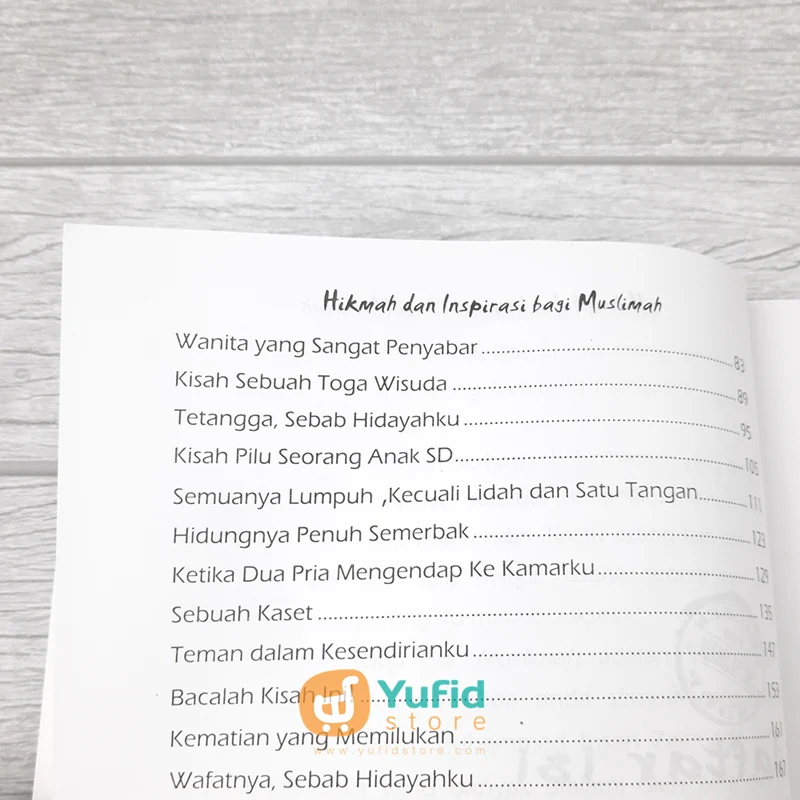 Hikmah dan Inspirasi bagi Muslimah
Wanita yang Sangat Penyabar ........ 83
Kisah Sebuah Toga Wisuda ........ 89
Tetangga, Sebab Hidayahku ........ 95
Kisah Pilu Seorang Anak SD ........ 105
Semuanya Lumpuh ,Kecuali Lidah dan Satu Tangan ........ 111
Hidungnya Penuh Semerbak ........ 123
Ketika Dua Pria Mengendap Ke Kamarku ........ 129
Sebuah Kaset ........ 135
Teman dalam Kesendirianku ........ 147
Bacalah Kisah Ini! ........ 153
Kematian yang Memilukan ........ 161
Wafatnya, Sebab Hidayahku ........ 167
Yufid
store
www.yufidstore.com